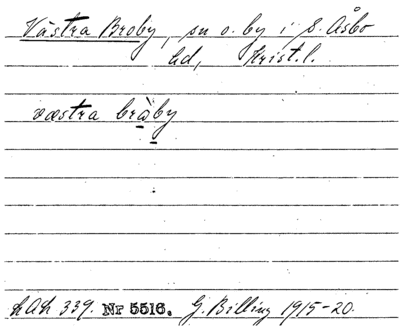 Västra Broby, sn o. by i S. Åsbo
hd, Krist. l.
væstra bràby
LAL 339. Nr 5516. G. Billing 1915-20.